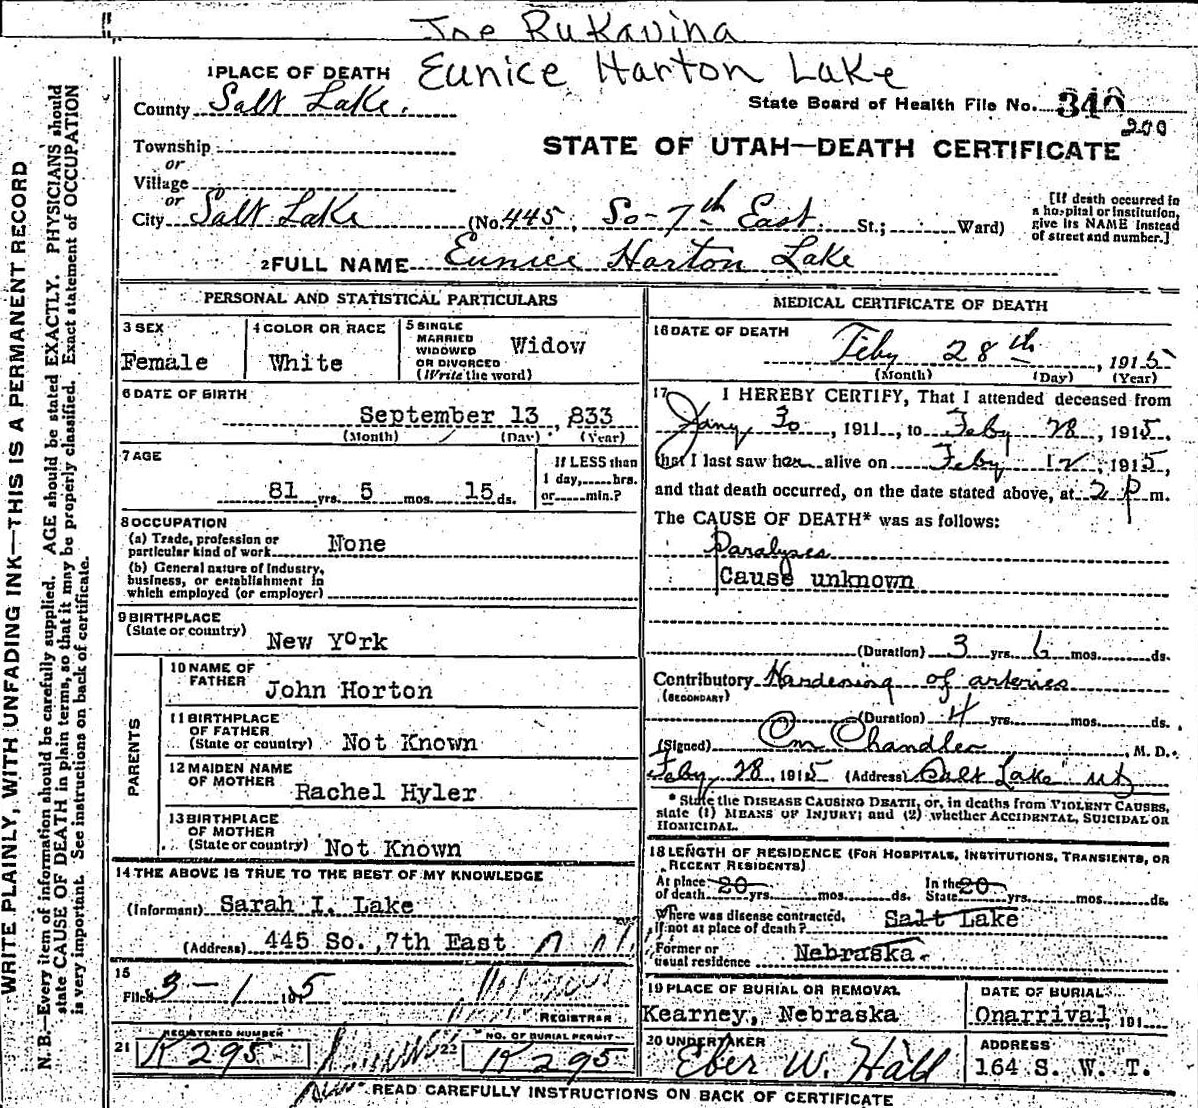 Joe Rukavina
Eunice Harton Lake
1 PLACE OF DEATH
County Salt Lake.
State Board of Health File No. 340
200
Township
or
Village
or
STATE OF UTAH—DEATH CERTIFICATE
City Salt Lake (No. 445, So- 7th East St.; Ward)
[If death occurred in a hospital or institution, give its NAME instead of street and number.]
2 FULL NAME Eunice Harton Lake
PERSONAL AND STATISTICAL PARTICULARS
3 SEX
Female
4 COLOR OR RACE
White
5 SINGLE
MARRIED
WIDOWED
OR DIVORCED
(Write the word)
Widow
6 DATE OF BIRTH
September 13, 833
(Month) (Day) (Year)
7 AGE
81 yrs. 5 mos. 15 ds.
If LESS than
1 day, hrs.
or min.?
8 OCCUPATION
(a) Trade, profession or
particular kind of work None
(b) General nature of industry,
business, or establishment in
which employed (or employer)
9 BIRTHPLACE
(State or country) New York
PARENTS
10 NAME OF
FATHER John Horton
11 BIRTHPLACE
OF FATHER
(State or country) Not Known
12 MAIDEN NAME
OF MOTHER Rachel Hyler
13 BIRTHPLACE
OF MOTHER
(State or country) Not Known
14 THE ABOVE IS TRUE TO THE BEST OF MY KNOWLEDGE
(Informant) Sarah I. Lake
(Address) 445 So. 7th East
15
Filed 3-1 1915
REGISTRAR
21 REGISTERED NUMBER
K 295
22 NO. OF BURIAL PERMIT
K 295
MEDICAL CERTIFICATE OF DEATH
16 DATE OF DEATH
Feby 28th, 1915
(Month) (Day) (Year)
17 I HEREBY CERTIFY, That I attended deceased from
Jany 30, 1911, to Feby 28, 1915.
that I last saw her alive on Feby 12, 1915,
and that death occurred, on the date stated above, at 2 P m.
The CAUSE OF DEATH* was as follows:
Paralyses
Cause unknown
(Duration) 3 yrs. 6 mos. ds.
Contributory Hardening of arteries
(SECONDARY)
(Duration) 4 yrs. mos. ds.
(Signed) Cm Chandler M. D.
Feby 28, 1915 (Address) Salt Lake ut
* State the DISEASE CAUSING DEATH, or, in deaths from VIOLENT CAUSES,
state (1) MEANS OF INJURY; and (2) whether ACCIDENTAL, SUICIDAL OR
HOMICIDAL.
18 LENGTH OF RESIDENCE (FOR HOSPITALS, INSTITUTIONS, TRANSIENTS, OR
RECENT RESIDENTS)
At place of death 20 yrs. mos. ds. In the State 20 yrs. mos. ds.
Where was disease contracted,
if not at place of death? Salt Lake
Former or
usual residence Nebraska.
19 PLACE OF BURIAL OR REMOVAL
Kearney, Nebraska
DATE OF BURIAL
Onarrival, 191
20 UNDERTAKER
Eber W. Hall
ADDRESS
164 S. W. T.
READ CAREFULLY INSTRUCTIONS ON BACK OF CERTIFICATE
WRITE PLAINLY, WITH UNFADING INK—THIS IS A PERMANENT RECORD
N. B.—Every item of information should be carefully supplied. AGE should be stated EXACTLY. PHYSICIANS should
state CAUSE OF DEATH in plain terms, so that it may be properly classified. Exact statement of OCCUPATION
is very important. See instructions on back of certificate.